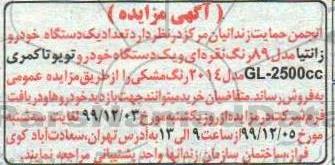 ( آگهی مزایده )
انجمن حمایت زندانیان مرکز در نظر دارد تعداد یک دستگاه خودرو
زانتیا مدل ۸۹ رنگ نقره ای و یک دستگاه خودرو تویوتا کمری
GL-2500cc مدل ۲۰۱۴ رنگ مشکی را از طریق مزایده عمومی
به فروش رساند. متقاضیان خرید میتوانند جهت بازدید خودرو ها و دریافت
فرم شرکت در مزایده از روز یکشنبه مورخ ۹۹/۱۲/۰۳ لغایت سه شنبه
مورخ ۹۹/۱۲/۰۵ از ساعت ۹ الی ۱۳ به آدرس تهران، سعادت آباد کوی
فراز، ساختمان سازمان زندانها واحد پشتیبانی مراجعه نمایند.